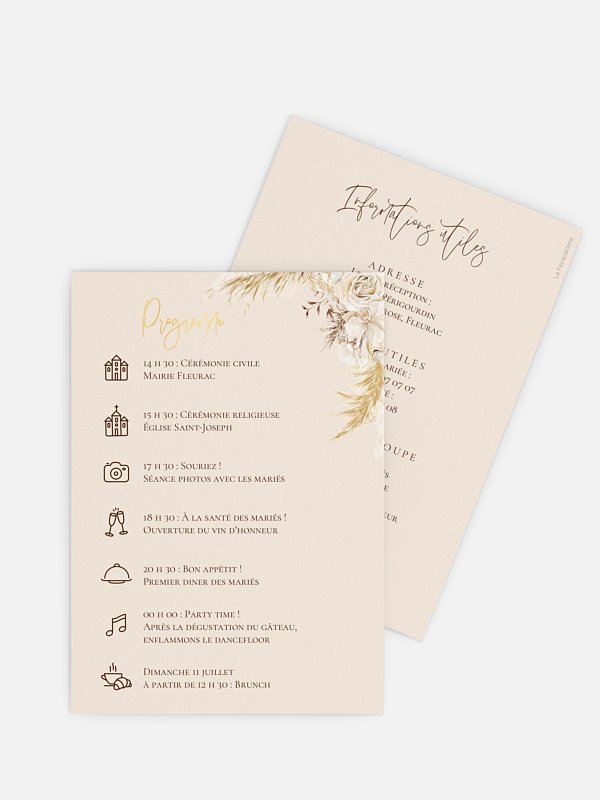 Programme
14 h 30 : Cérémonie civile
Mairie Fleurac
15 h 30 : Cérémonie religieuse
Église Saint-Joseph
17 h 30 : Souriez !
Séance photos avec les mariés
18 h 30 : À la santé des mariés !
Ouverture du vin d'honneur
20 h 30 : Bon appétit !
Premier diner des mariés
00 h 00 : Party time !
Après la dégustation du gâteau,
enflammons le dancefloor
Dimanche 11 juillet
à partir de 12 h 30 : Brunch
Informations utiles
ADRESSE
réception :
Périgourdin
Fleurac
utiles
07 07
08